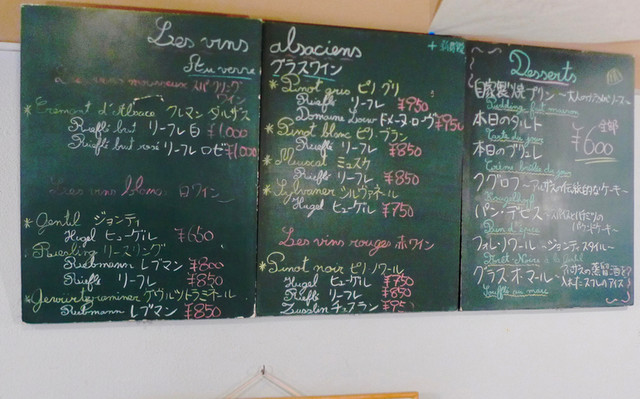 Les vins alsaciens
Au verre
グラスワイン
Les vins mousseux スパークリング
ワイン
*Cremant d'Alsace クレマン ダルザス
Rieflé brut リーフレ 白 ¥1,000
Rieflé brut rosé リーフレ ロゼ ¥1,000
Les vins blancs 白ワイン
*Gentil ジョンティ
Hugel ヒューゲル ¥650
*Riesling リースリング
Rietmann レブマン ¥800
Rieflé リーフレ ¥850
*Gewurtzgraminer ゲヴュルツトラミネール
Rietmann レブマン ¥850
*Pinot gris ピノ グリ
Rieflé リーフレ ¥950
Domaine Loew ドメーヌ・ローヴ ¥950
*Pinot blanc ピノ・ブラン
Rieflé リーフレ ¥850
*Muscat ミュスケ
Rieflé リーフレ ¥850
*Sylvaner シルヴァネール
Hugel ヒューゲル ¥750
Les vins rouges 赤ワイン
*Pinot noir ピノ ノワール
Hugel ヒューゲル ¥750
Rieflé リーフレ ¥850
Desserts
自家製焼プリン
Pudding fait maison
本日のタルト
Tarte du jour
全部
¥600
本日のブリュレ
Crème brûlée du jour
クグロフ ～アルザスの伝統的なケーキ～
Kougelhopf
パン・デピス
パウンドケーキ～
Pain d'épice
フォレ・ノワール ～ジョンティスタイル～
Forêt-Noire à la Gentil
グラス・オ・マール
入れたスフレのアイス
Soufflé au marc